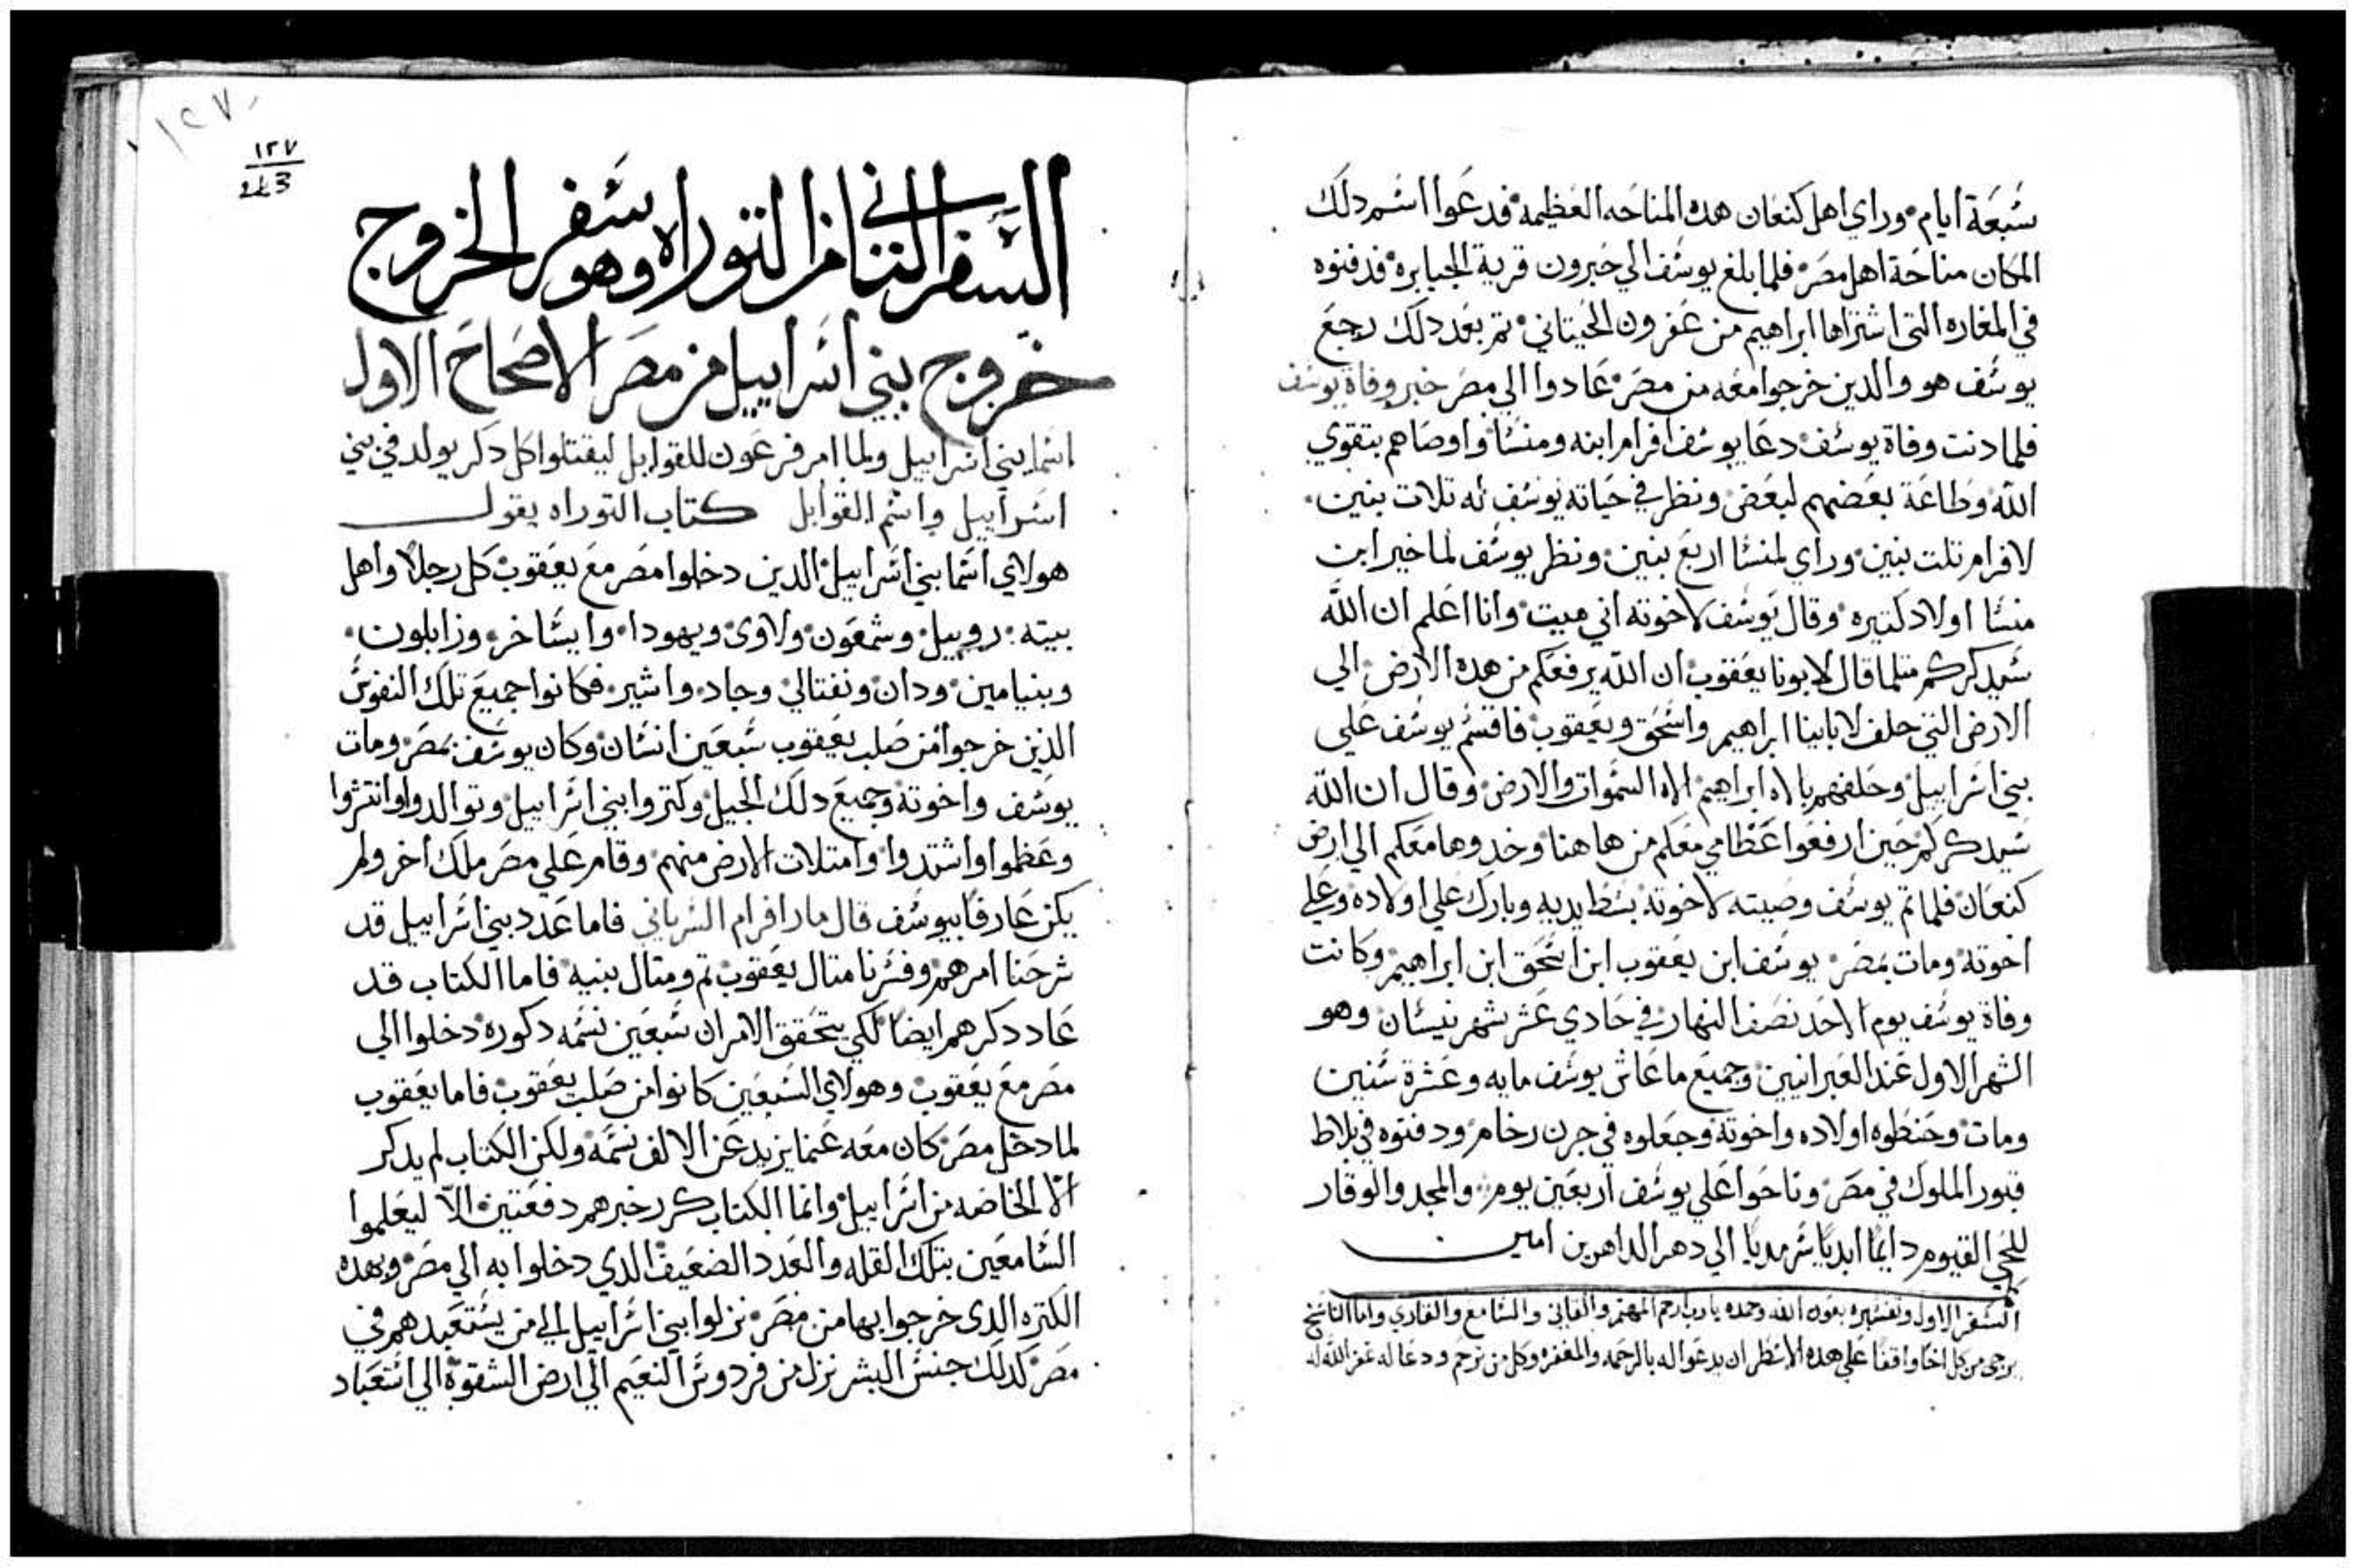 سبعة ايام وراي اهل كنعان هده المناحه العظيمه فدعوا اسم دلك
المكان مناحة اهل مصر فلما بلغ يوسف الي حبرون قرية الجبابره فدفنوه
في المغاره التي اشتراها ابراهيم من عفرون الحيتاني تم بعد دلك رجع
يوسف هو والدين خرجوا معه من مصر عادوا الي مصر خبر وفاة يوسف
فلما دنت وفاة يوسف دعا يوسف افرام ابنه ومنسا واوصاهم بتقوي
الله وطاعة بعضهم لبعض ونظر في حياته يوسف له تلات بنين
لافرام تلت بنين وراي لمنسا اربع بنين ونظر يوسف لماخير ابن
منسا اولاد كتيره وقال يوسف لاخوته اني ميت وانا اعلم ان الله
سيدكركم متلما قال لابونا يعقوب ان الله يرفعكم من هده الارض الي
الارض التي حلف لابابينا ابراهيم واسحق ويعقوب فاقسم يوسف علي
بني اسراييل وحلفهم بالاه ابراهيم الاه السموات والارض وقال ان الله
سيدكركم حين ارفعوا عظامي معكم من هاهنا وخدوها معكم الي ارض
كنعان فلما تم يوسف وصيته لاخوته بسط يديه وبارك علي اولاده وعلي
اخوته ومات بمصر يوسف ابن يعقوب ابن اسحق ابن ابراهيم وكانت
وفاة يوسف يوم الاحد نصف النهار في حادي عشر شهر نيسان وهو
الشهر الاول عند العبرانيين وجميع ما عاش يوسف مايه وعشرة سنين
ومات وحنطوه اولاده واخوته وجعلوه في جرن رخام ودفنوه في بلاط
قبور الملوك في مصر وناحوا علي يوسف اربعين يوم والمجد والوقار
للحي القيوم دايما ابديا سرمديا الي دهر الداهرين امين
السفر الاول وتفسيره بعون الله وحده يارب ارحم المهتم والقاني والسامع والقاري واما الناسخ
يرجي من كل اخا واقفا علي هده الاسطر ان يدعوا له بالرحمه والمغفره وكل من ترحم ودعا له غفر الله له
١٢٧
١٢٧
243
السفر الثاني من التوراه وهو سفر الخروج
خروج بني اسراييل من مصر الاصحاح الاول
اسما بني اسراييل ولما امر فرعون للقوابل ليقتلوا كل دكر يولد في بني
اسراييل واسم القوابل كتاب التوراه يقول
هولاي اسما بني اسراييل الدين دخلوا مصر مع يعقوب كل رجلا واهل
بيته روبيل وشمعون ولاوي ويهودا وايساخر وزابلون
وبنيامين ودان ونفتالي وجاد واشير فكانوا جميع تلك النفوس
الذين خرجوا من صلب يعقوب سبعين انسان وكان يوسف بمصر ومات
يوسف واخوته وجميع دلك الجيل وكتروا بني اسراييل وتوالدوا وانتشروا
وعظموا واشتدوا وامتلات الارض منهم وقام علي مصر ملك اخر ولم
يكن عارفا بيوسف قال مار افرام السرياني فاما عدد بني اسراييل قد
شرحنا امرهم وفسرنا متال يعقوب تم ومتال بنيه فاما الكتاب قد
عاد دكرهم ايضا لكي يتحقق الامر ان سبعين نسمه دكوره دخلوا الي
مصر مع يعقوب وهولاي السبعين كانوا من صلب يعقوب فاما يعقوب
لما دخل مصر كان معه عنما يزيد عن الالف نسمه ولكن الكتاب لم يدكر
الا الخاصه من اسراييل وانما الكتاب كرر خبرهم دفعتين الا ليعلموا
السامعين بتلك القله والعدد الضعيف الدي دخلوا به الي مصر وبهده
الكتره الدي خرجوا بها من مصر نزلوا بني اسراييل الي من يستعبدهم في
مصر كدلك جنس البشر نزل من فردوس النعيم الي ارض الشقوة الي استعباد